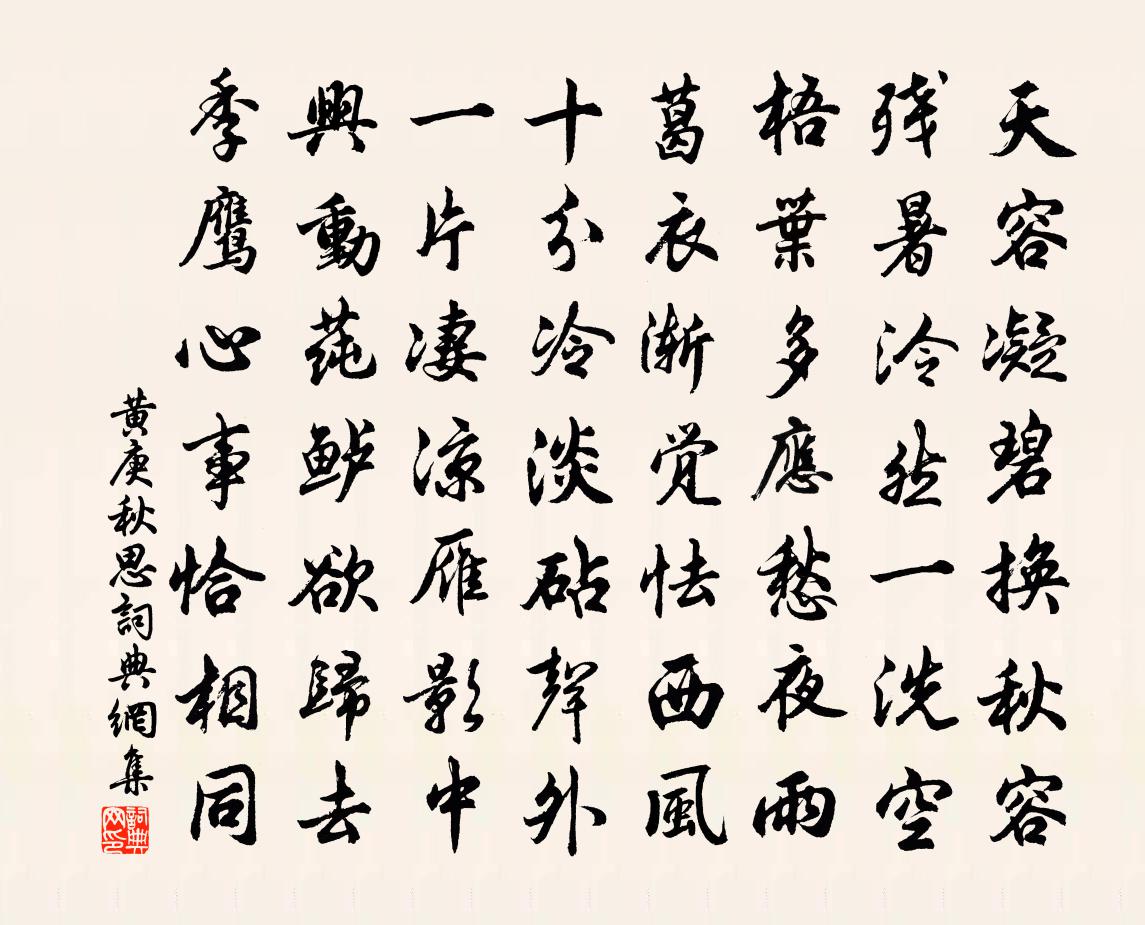 天容凝碧换秋容
残暑泠然一洗空
梧葉多應愁夜雨
葛衣渐觉怯西風
十分冷淡砧聲外
一片凄凉雁影中
興動莼鲈欲歸去
季鹰心事恰相同
黄庚秋思詞典網集
詞典网印